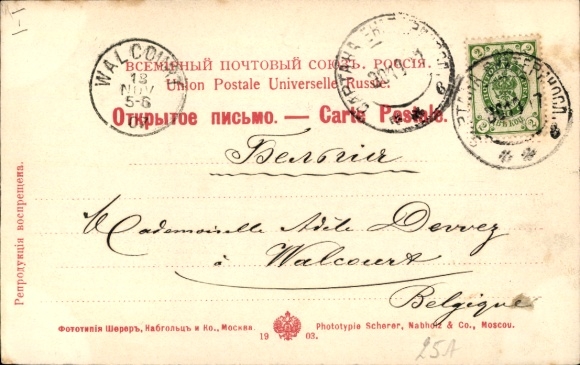 ВСЕМІРНЫЙ ПОЧТОВЫЙ СОЮЗЪ. РОССІЯ.
Union Postale Universelle Russie.
Открытое письмо. — Carte Postale.
WALCOURT
13
NOV
5-6
Бельгия
Mademoiselle Adèle Devvez
à
Walcourt
Belgique
Репродукція воспрещена.
Фототипія Шереръ, Набгольцъ и Ко., Москва.
19 03.
Phototypie Scherer, Nabholz & Co., Moscou.
25A